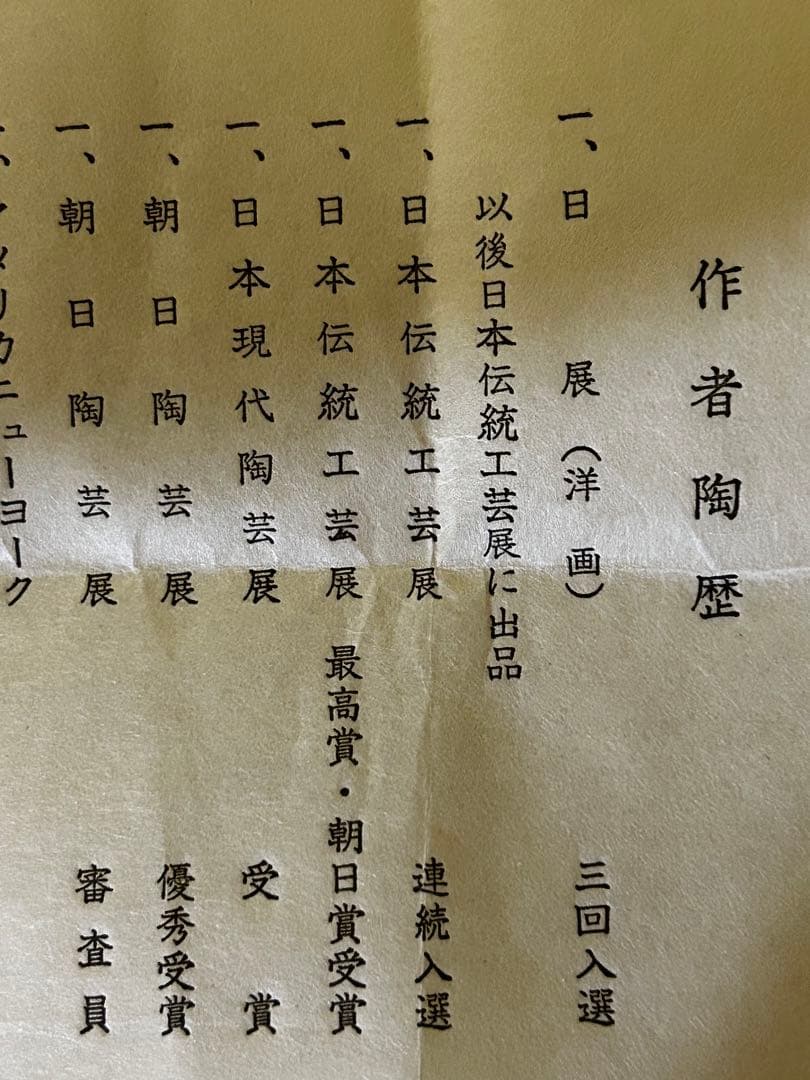 作者陶歴
一、日展（洋画）三回入選
以後日本伝統工芸展に出品
一、日本伝統工芸展連続入選
一、日本伝統工芸展最高賞・朝日賞受賞
一、日本現代陶芸展受賞
一、朝日陶芸展優秀受賞
一、朝日陶芸展審査員
一、アメリカニューヨーク